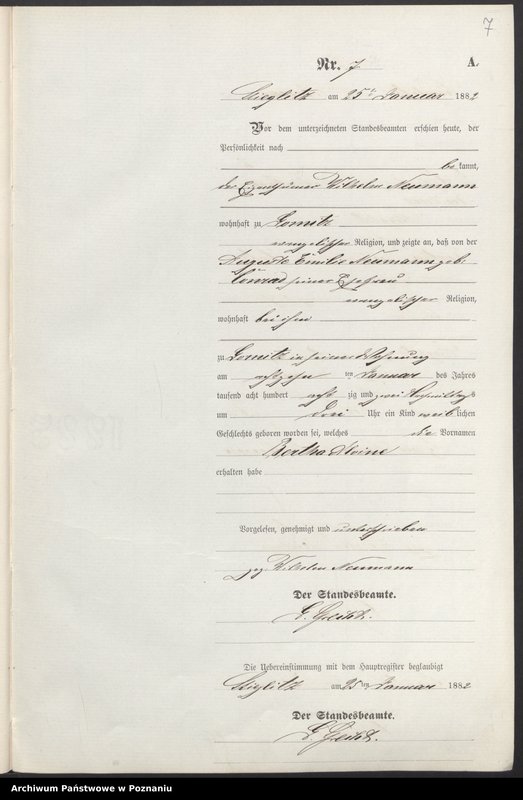 7
Nr. 7 A.
Stieglitz am 25t Januar 1882
Vor dem unterzeichneten Standesbeamten erschien heute, der
Persönlichkeit nach
be kannt,
der Eigenthümer Wilhelm Neumann
wohnhaft zu Gornitz
evangelischer Religion, und zeigte an, daß von der
Auguste Emilie Neumann geb.
Conrad seiner Ehefrau
evangelischer Religion,
wohnhaft bei ihm
zu Gornitz in seiner Wohnung
am achtzehn ten Januar des Jahres
tausend acht hundert acht zig und zwei Nachmittags
um drei Uhr ein Kind weib lichen
Geschlechts geboren worden sei, welches die Vornamen
Bertha
erhalten habe
Vorgelesen, genehmigt und unterschrieben
gez. Wilhelm Neumann
Der Standesbeamte.
Die Uebereinstimmung mit dem Hauptregister beglaubigt
Stieglitz am 25 ten Januar 1882
Der Standesbeamte.
Archiwum Państwowe w Poznaniu